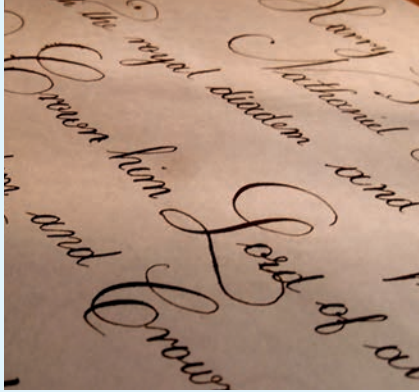 Harry
Nathaniel
the royal diadem and
Crown him Lord of
and Crown